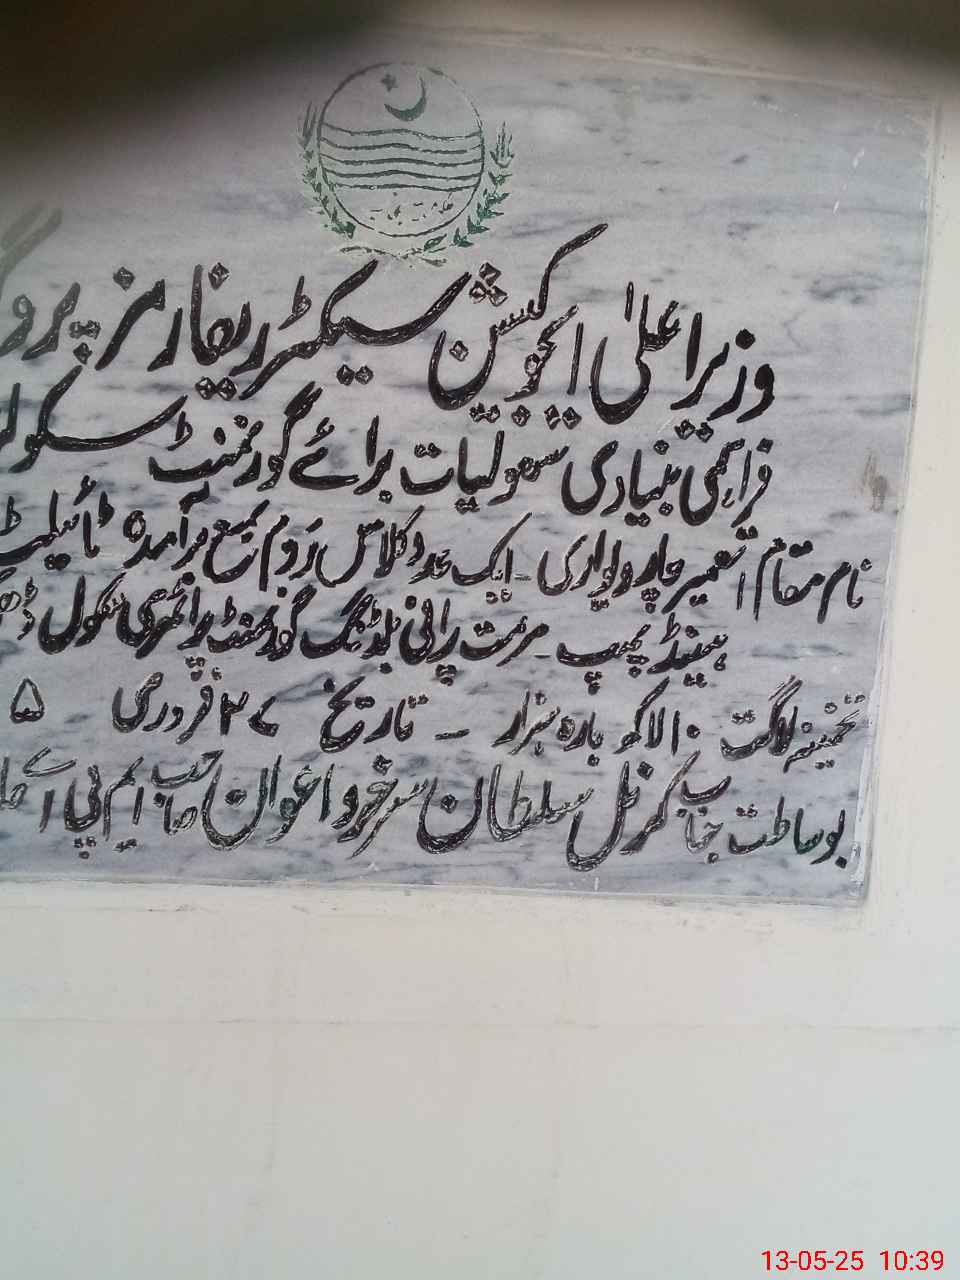 وزیر اعلیٰ ایجوکیشن سیکٹر ریفارمز پروگ
فراہمی بنیادی سہولیات برائے گورنمنٹ سکول
نام مقام تعمیر چار دیواری ۔ ایک عدد کلاس روم بمع برآمدہ ٹائیلٹ
ہینڈ پمپ ۔ مرمت پرانی بلڈنگ گورنمنٹ پرائمری سکول
تخمینہ لاگت ۱۰ لاکھ بارہ ہزار ۔ تاریخ ۲۷ فروری ۵
بوساطت جناب کرنل سلطان سرخرو اعوان صاحب ایم پی اے
13-05-25 10:39